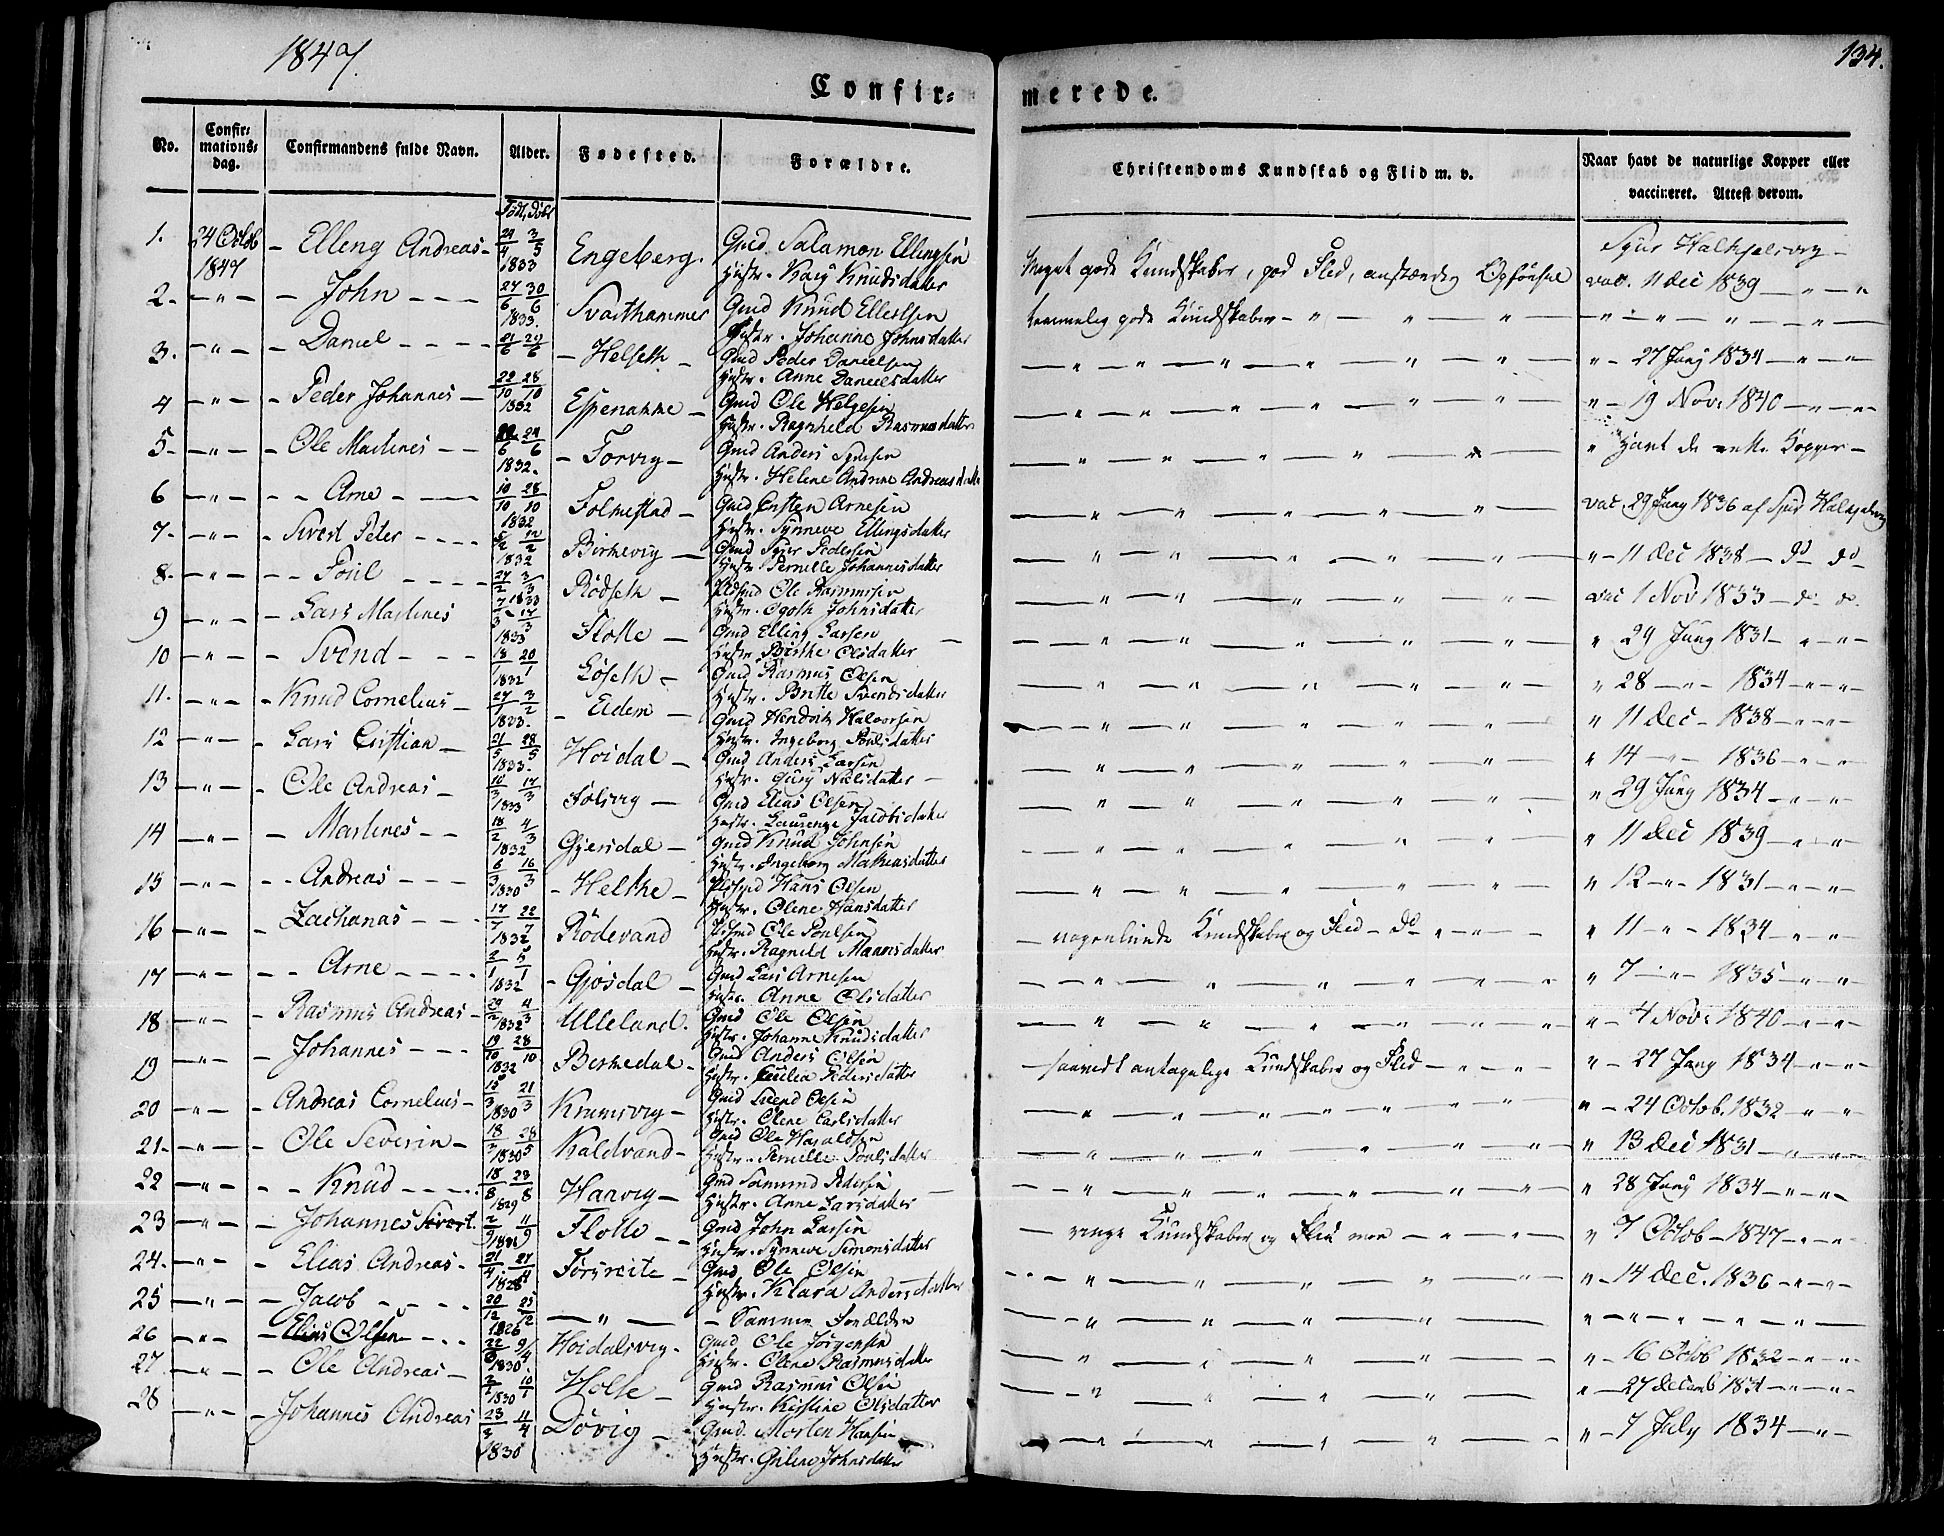 1847.
134.
Confir=
merede.
No.
Confir=
mations=
dag.
Confirmandens fulde Navn.
Alder.
Fødested.
Forældre.
Christendoms Kundskab og Flid m. v.
Naar havt de naturlige Kopper eller
vaccineret. Attest derom.
Født, Døbt
1. 24 Octob 1847 – Elling Andreas – 29/4 3/5 1833 Engeberg. Gmd Salamon Ellingsen
Hustr. Kary Knudsdatter Meget gode Kundskaber, god Flid, anstændig Opførsel vac. 11 Dec 1839 – " – "
2. – " – – John – – – 24/6 30/6 1833. Svarthammer Gmd Knud Ellevsen
Hustr. Johanne Johnsdatter temmelig gode Kundskaber – " – " – " – – " – " – " – " –
3. – " – – Daniel – – – – 21/6 29/6 – Helseth – Gmd Peder Danielsen
Hustr. Anne Danielsdatter " – 27 Juny 1834 – " – " –
4 – " – – Peder Johannes – 22/10 28/10 1832 Espenakke – Gmd Ole Helgesen
Hustr. Ragnheld Rasmusdatter " – 19 Nov: 1840 – " – " –
5. – " – – Ole Martines – – 24/6 1832. – Torvig – Gmd Anders
Hustr. Helene Andrine " havt de Kopper –
6 – " – – – Arne – – – 10/10 28/10 1832 Folmestad – Gmd Arnesen
Hustr. Synneve Ellingsdatter vac. 29 Juny 1836 af
7. – " – Sivert Peter – – – – 12/2 1832 Birkevig – Gmd Pedersen
Hustr. Pernille Johannesdatter " – 11 Dec 1838 – do do
8. – " – – – Poul – – – – 24/2 3/3 1833 Rödseth – Ole Rasmussen
Hustr. Johnsdatter vac 1 Nov 1833 – do. do.
9 – " – – Lars Martines 17/3 1833 Flotte – Gmd Elling Larsen
Hustr. Berthe Olsdatter " 29 Juny 1831 – " – " –
10 – " – – Svend – – – 18/1 20/1 1832 Löseth – Gmd Rasmus Olsen
Hustr. Britte Svendsdatter " 28 – " – 1834 – " – " –
11. – " – – Knud Cornelius – 27/1 3/2 1833. – Eidem – Gmd Hendrik Halvorsen
Hustr. Ingeborg Poulsdatter " 11 Dec – 1838 – " – " –
12 – " – – Lars Cristian – 21/5 28/5 1833. Hoidal – Gmd Anders Larsen
Hustr. Gury Nielsdatter – " 14 – " – 1836 – " – " –
13 – " – – Ole Andreas – 10/3 17/3 1833 Solvig – Gmd Elias Olsen
Hustr. Jacobsdatter " 29 Juny 1834 – " – " –
14 – " – – Martines – – 18/2 4/3 1832 Gjersdal – Gmd Knud Johnsen
Hustr. Ingeborg Mathiasdatter " 11 Dec 1839 – " – " –
15 – " – – – Andreas – – – 6/3 16/3 1830 – Helkke – Hans Olsen
Hustr. Olene Hansdatter " 12 – " – 1831 – " – " –
16 – " – – Zacharias – – – 17/7 22/7 1832 Rödevand Ole Poulsen
Hustr. Ragnild Monsdatter – nogenlunde Kundskaber og Flid – do – " – " – " 11 – " – 1834 – " – " –
17 – " – – – Arne – – – – 2/1 5/1 1832 – Gjösdal – Gmd Lars Arnesen
Hustr. Anne Olsdatter " 7 – " – 1835 – " – " –
18. – " – – Rasmus Andreas – 29/2 4/3 1832 Ulleland. Gmd Ole Olsen
Hustr. Johanne Knudsdatter " – 4 Nov: 1840 – " – " –
19 – " – – Johannes – – – 19/10 28/10 1832 Berkedal – Gmd Anders Olsen
Hustr. Cecilia Pedersdatter – saavidt antagelige Kundskaber og Flid – " – " – " – 27 Juny 1834 – " – " –
20 – " – – Andreas Cornelius – 15/3 21/3 1830 Krumsvig – Gmd Svend Olsen
Hustr. Olene Carlsdatter " – 24 Octob. 1832 – " – " –
21. – " – – Ole Severin – 18/3 28/5 1830 Kaldvand – Gmd Ole Haraldsen
Hustr. Pernille Poulsdatter " 13 Dec 1831 – " – " –
22 – " – – – Knud – – – – 18/8 23/8 1829 Harvig – Gmd Samund Pedersen
Hustr. Anne Larsdatter " 28 Juny 1834 – " – " –
23 – " – – Johannes Sivert. 2/9 11/9 Flotte – – Gmd John Larsen
Hustr. Synneve Simonsdatter – ringe Kundskaber og Flid men – " – " – " 7 Octob – 1847 – " – " –
24. – " – – Elias Andreas – 21/4 27/4 1828 – Gmd Ole Olsen
Hustr. Klara Andersdatter " – 14 Dec. 1836 – " – " –
25 – " – – Jacob – – – – 20/12 25/12 1826 – " – – Samme Forældre " – " – " – " – " –
26 – " – – Elias Olsen – – – 22/3 9/4 1830 Hoidalsvig – Gmd Ole Jörgensen
Hustr. Olene Rasmusdatter " – 16 Octob 1832 – " – " –
27 – " – – Ole Andreas – 2/1 10/1 1830 Holte – Gmd Rasmus Olsen
Hustr. Kirstine Olsdatter " – 27 Decemb 1831 – " – " –
28 – " – – Johannes Andreas 23/3 11/4 1830 Dövig – Gmd. Morten Hansen
Hustr. Johnsdatter " – 7 July 1834 – " –